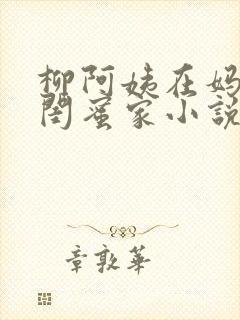 柳阿姨在妈
闺蜜家小説
章敦華